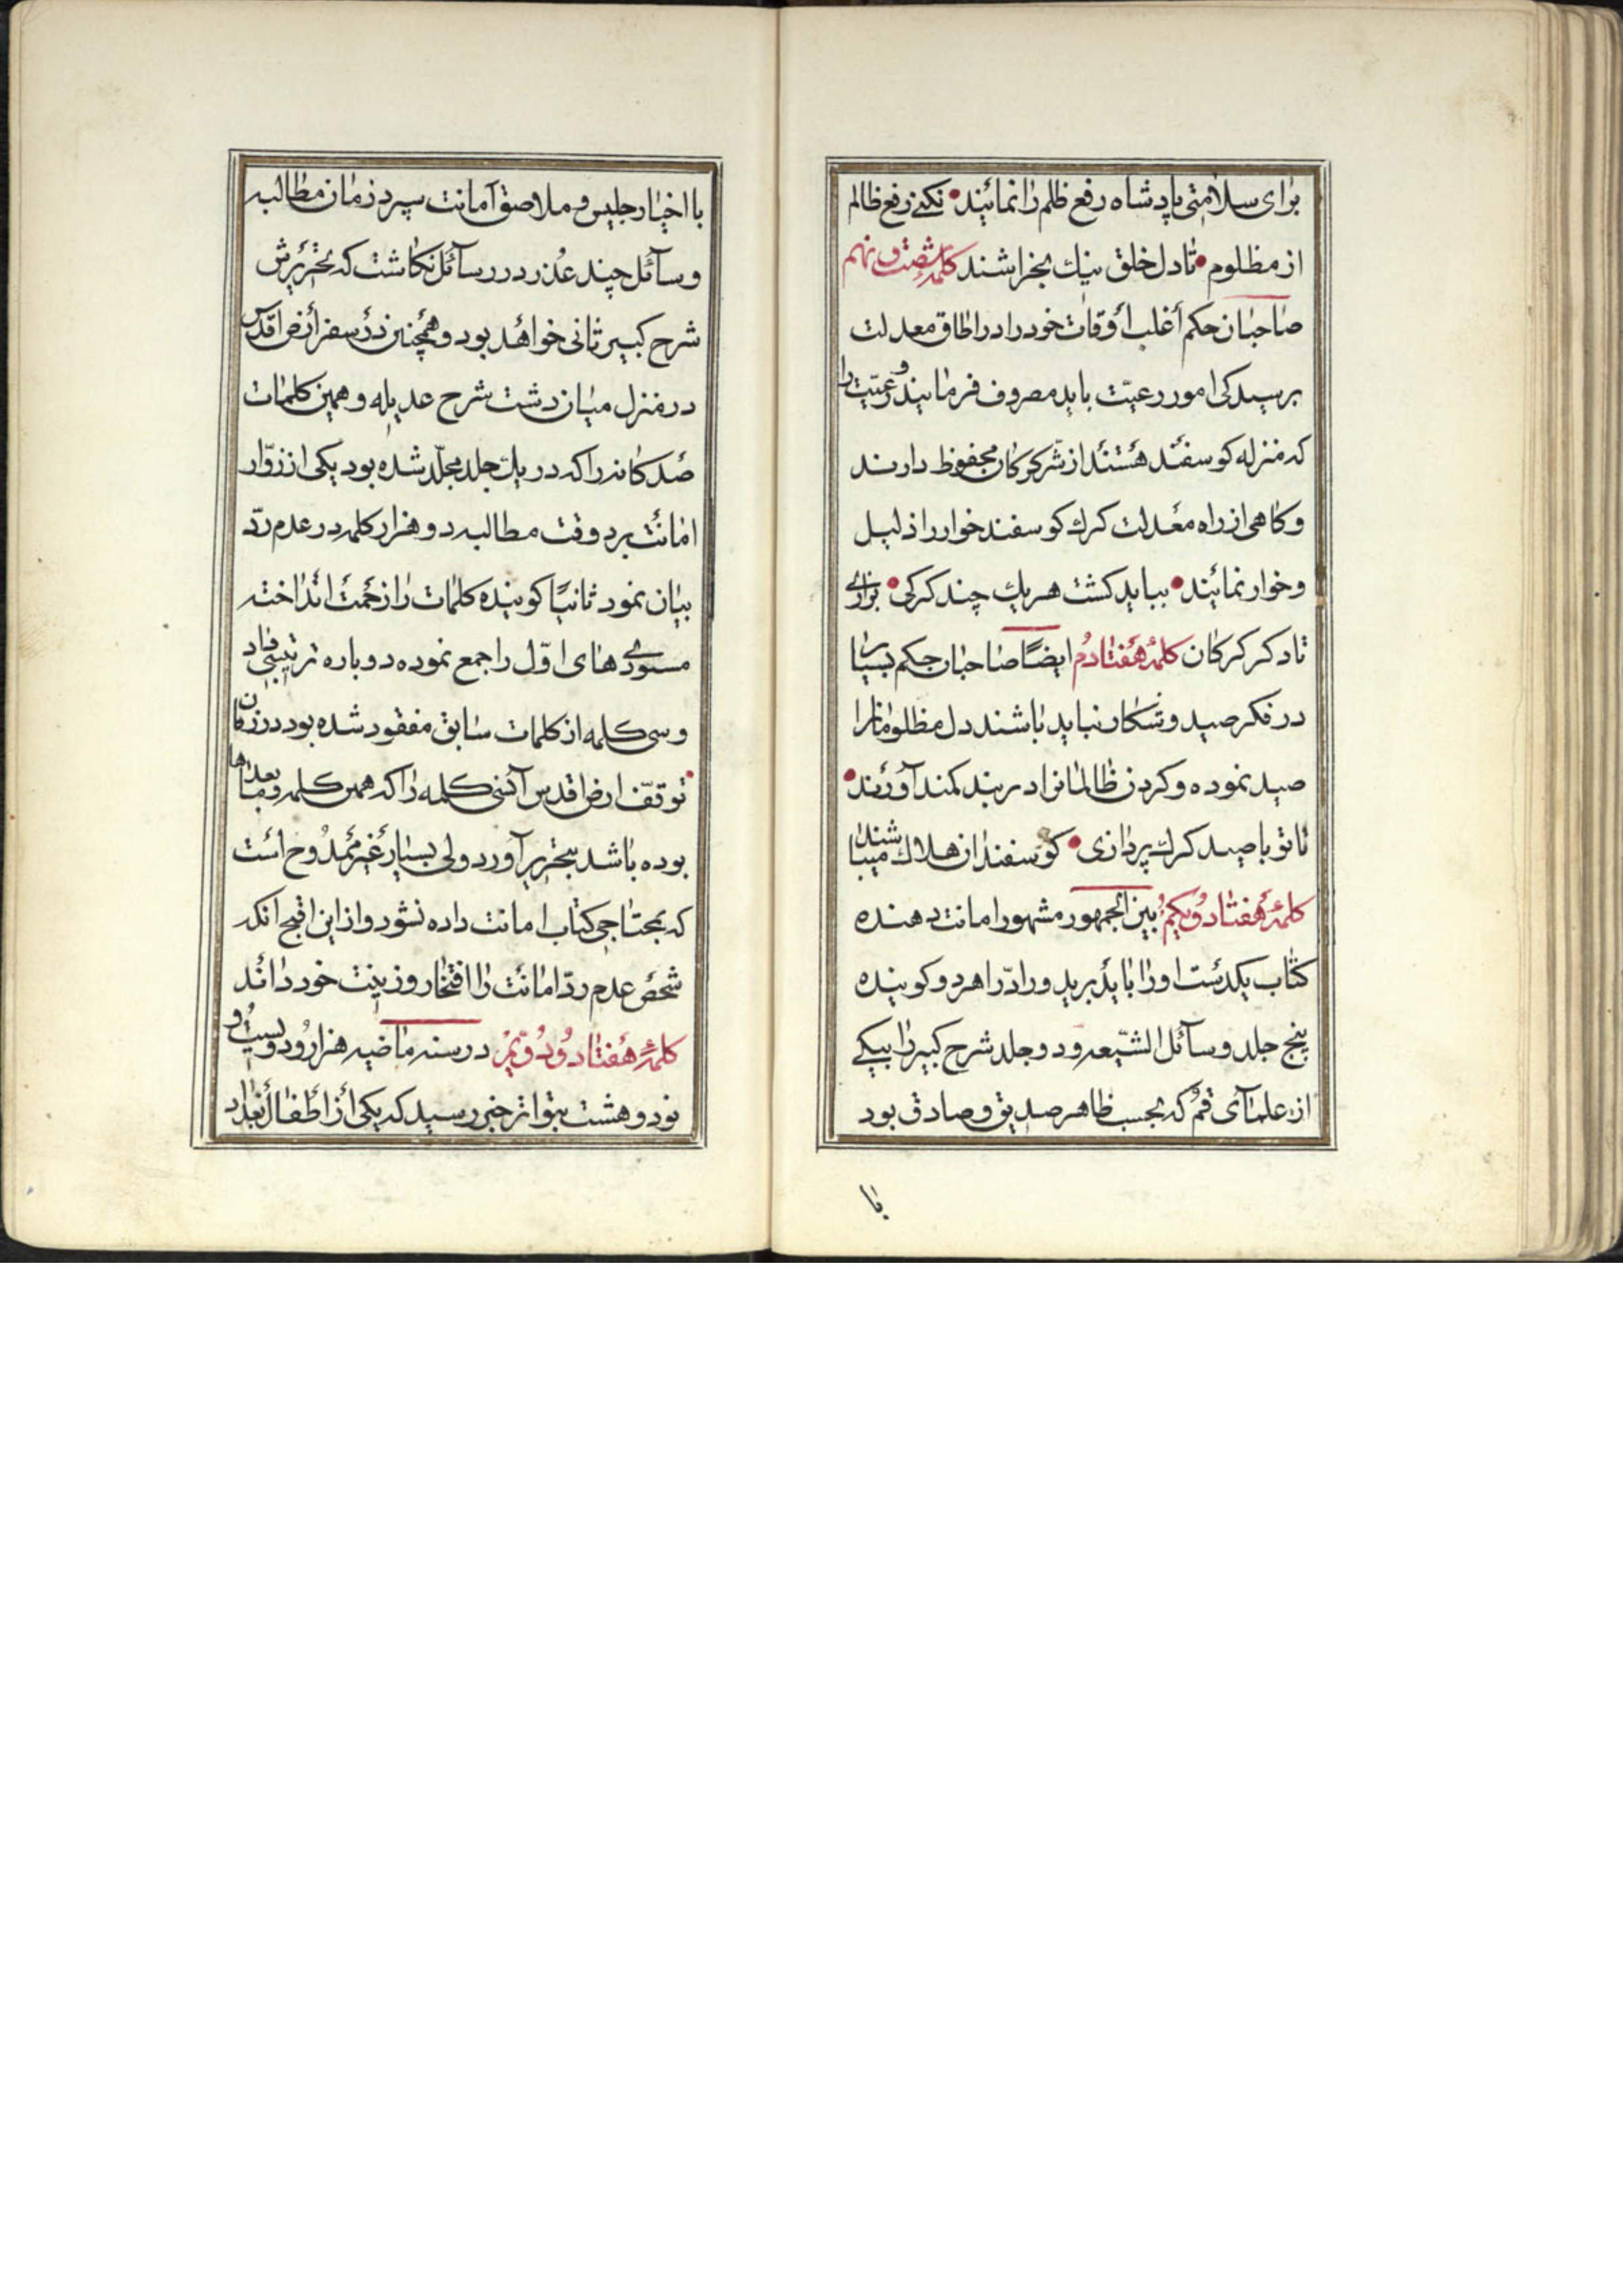 برای سلامتی پادشاه رفع ظلم را نمائید • نکنے رفع ظالم
از مظلوم • تا دل خلق نیك بخراشند کلمهٔ شصت و نهم
صاحبان حکم أغلب أوقات خود را در اطاق معدلت
برسیدکی امور رعیّت باید مصروف فرمایند و رعیّت را
که منزله کوسفند هستند از شرّ کرکان محفوظ دارند
و کاهی از راه معدلت کرك کوسفند خوار را ذلیل
و خوار نمائیند • بباید کشت هر یك چند کرکی • بزاری
تا دکر کرکان کلمهٔ هفتادم ایضًا صاحبان حکم بسیار
در فکر صید و شکار نباید باشند دل مظلومانرا
صید نموده و کردن ظالمانرا در بند کمند آورند •
تا تو با صید کرك پردازی • کوسفندان هلاك میباشند
کلمهٔ هفتاد و یکم بین الجمهور مشهور امانت دهنده
کتاب یکدست او را باید برید و رادّ را هر دو کوینده
پنج جلد وسآئل الشّیعه و دو جلد شرح کبیر را بیکے
از علمآی قم که بحسب ظاهر صدیق و صادق بود
با
با اخبار جلیس و ملاصق آمانت سپرد زمان مطالبه
وسآئل چند عذر در رسآئل نکاشت که تحریرش
شرح کبیر ثانی خواهد بود و همچنین در سفر أرض اقدس
در منزل میان دشت شرح عدیله و همین کلمات
صد کانه را که در یك جلد مجلّد شده بود یکی از زوّار
امانت برد وقت مطالبه دو هزار کلمه در عدم ردّ
بیان نمود ثانیًا کوینده کلمات را زحمت انداخته
مسودّے های اوّل را جمع نموده دوباره ترتیبی داد
و سی کلمه از کلمات سابق مفقود شده بود در زمان
توقف ارض اقدس آن سی کلمه را که همین کلمه و بعدها
بوده باشد بتحریر آورد ولی بسیار غیر ممدوح است
که بمحتاجی کتاب امانت داده نشود و از این اقبح انکه
شخص عدم ردّ امانت را افتخار و زینت خود داند
کلمهٔ هفتاد و دوّیم در سنه ماضیه هزار و دویست و
نود و هشت بتواتر خبر رسید که یکی از أطفال بغداد